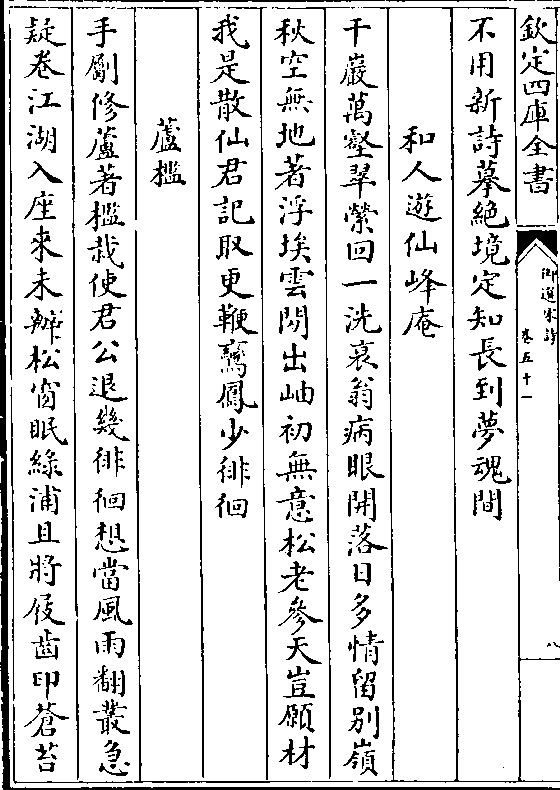 欽定四庫全書
御選宋詩
卷五十一
八
不用新詩摹絶境定知長到夢魂間
和人遊仙峰庵
千巖萬壑翠縈回一洗衰翁病眼開落日多情留别嶺
秋空無地著浮埃雲閒出岫初無意松老參天豈願材
我是散仙君記取更鞭鸞鳳少徘徊
蘆檻
手劚修蘆著檻栽使君公退幾徘徊想當風雨翻叢急
疑卷江湖入座來未辦松窗眠綠浦且將屐齒印蒼苔